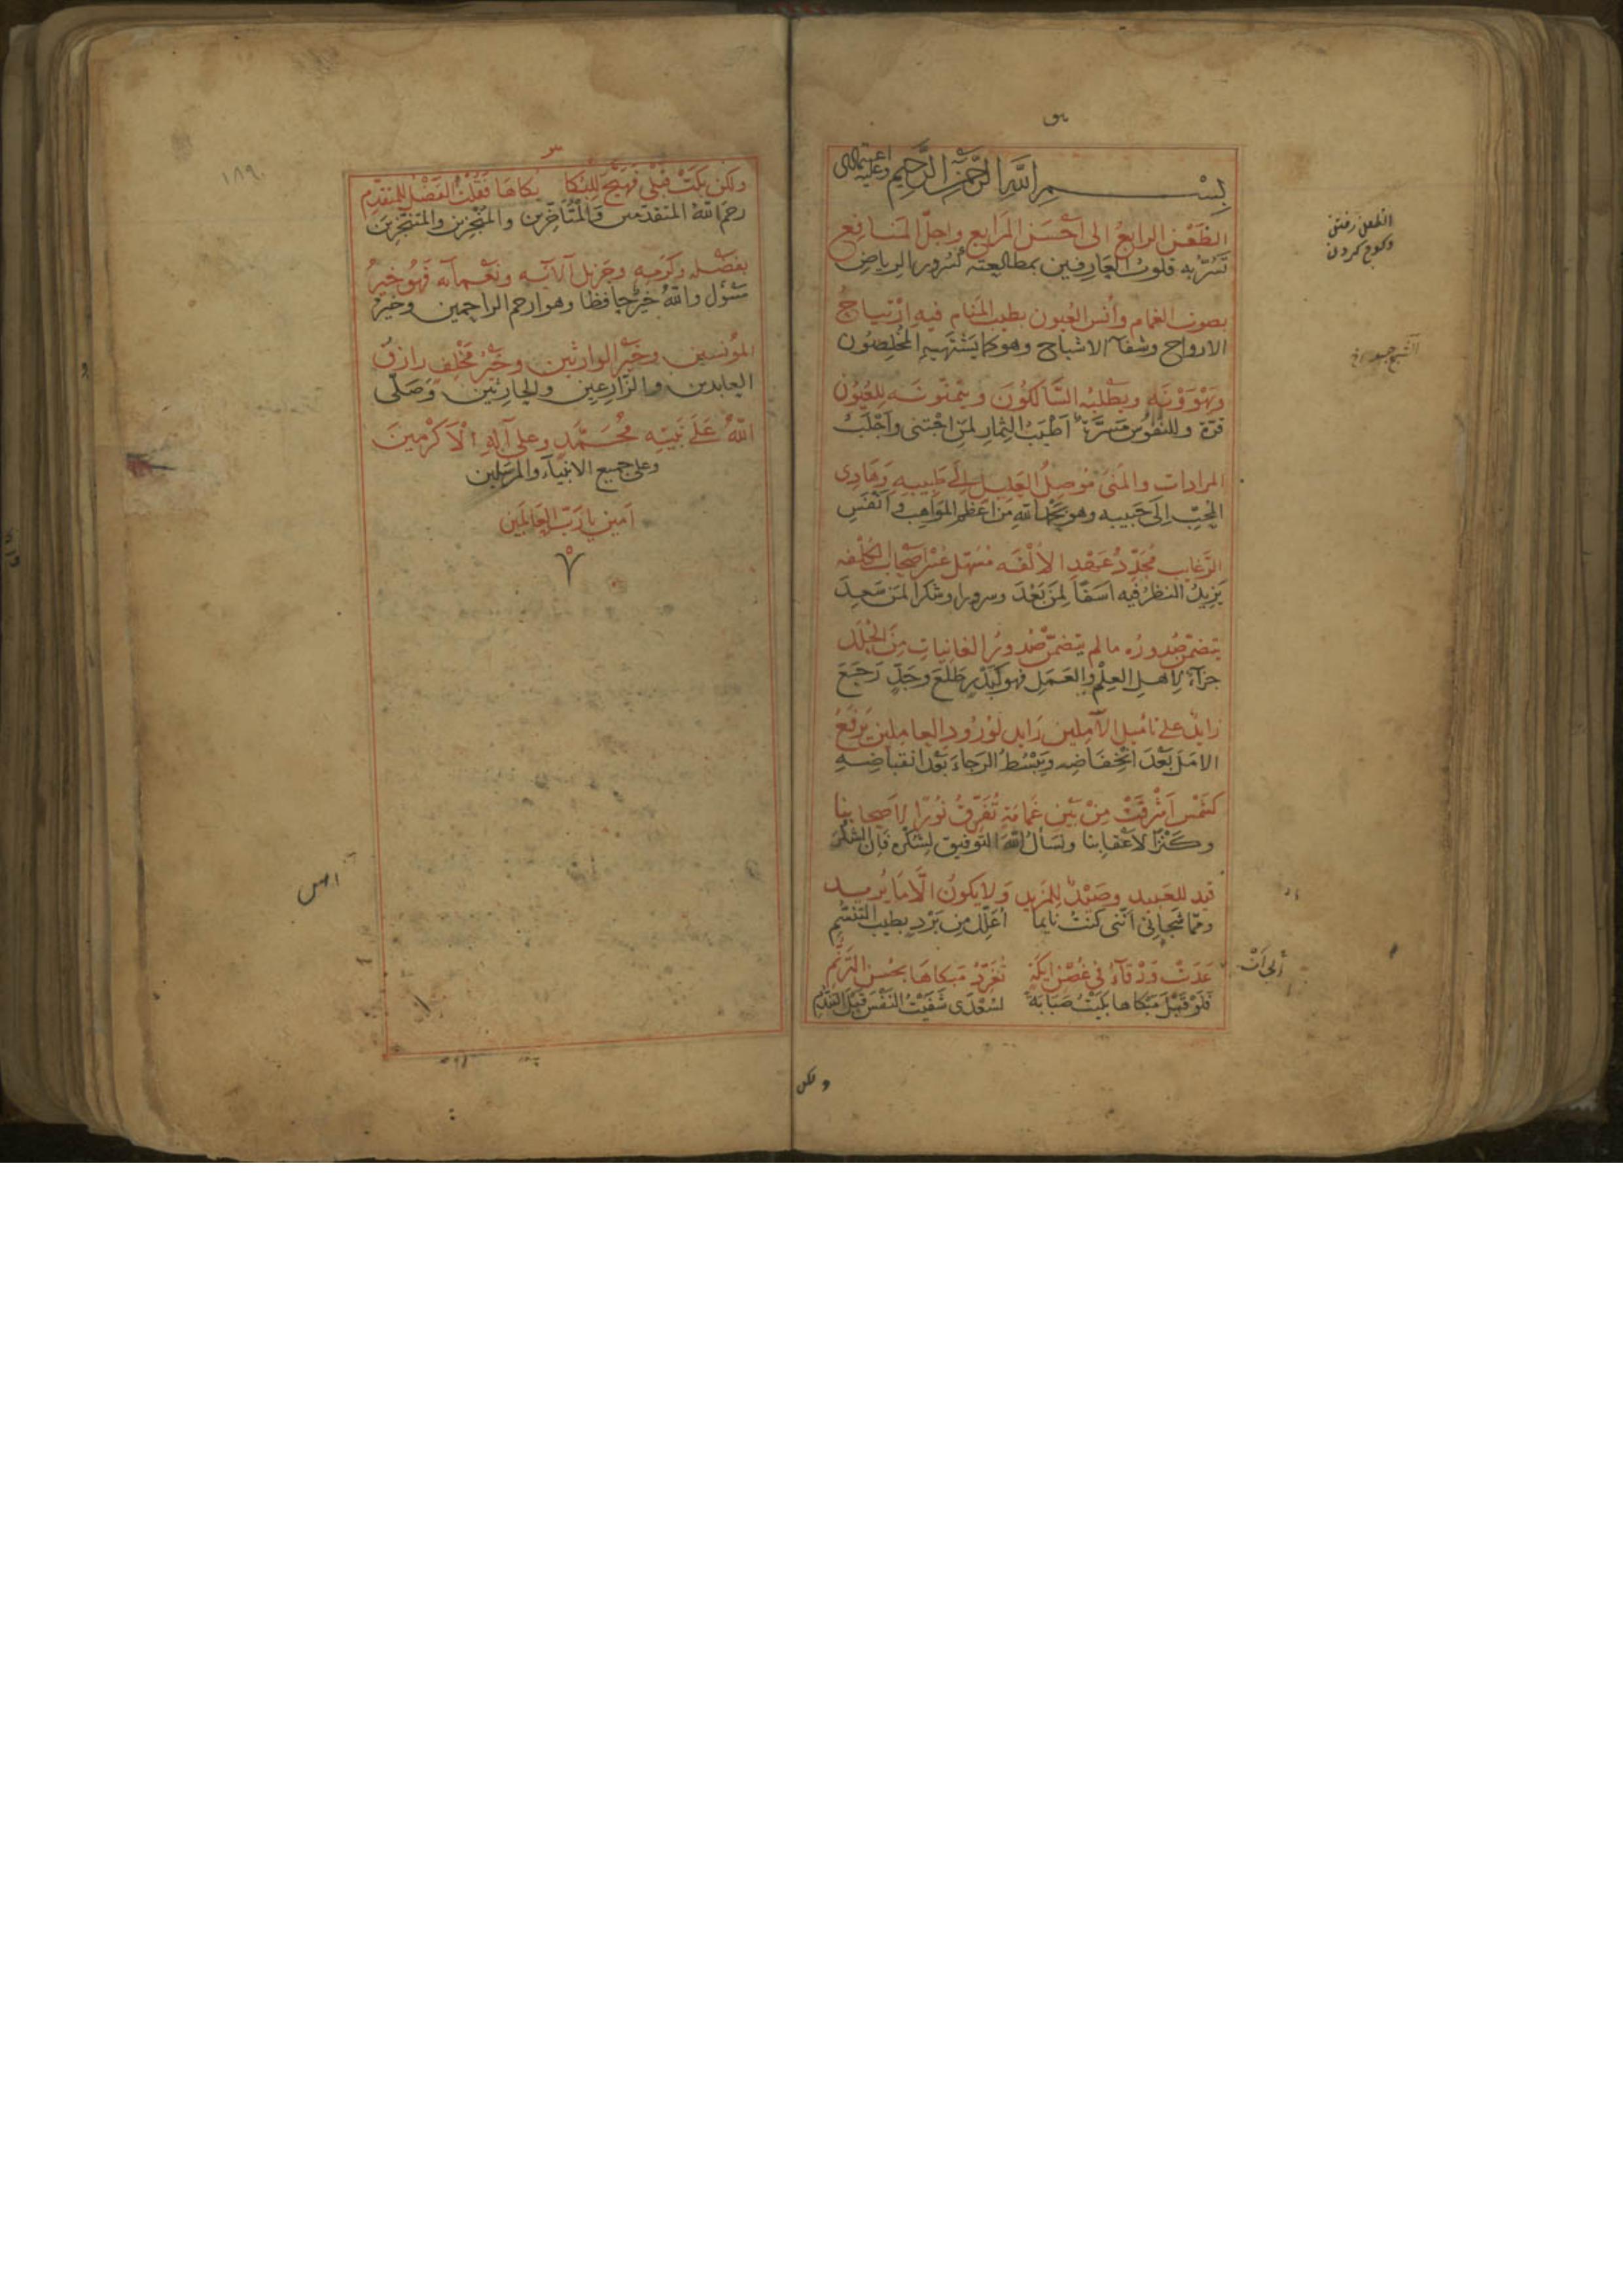 بسم الله الرحمن الرحيم وعليه اعتمادى
الظعن الرابع الى احسن المرابع واجل المنافع
تسر به قلوب العارفين بمطالعته كسرور الرياض
بصوب الغمام وأنس العيون بطيب المنام فيه ارتياح
الارواح وشفاء الاشباح وهو كما يشتهيه المخلصون
ويهوونه ويطلبه السالكون ويتمنونه للعيون
قرة وللنفوس مسرة اطيب الثمار لمن اجتنى واجلب
المرادات والمنى موصل العليل الى طبيبه وهادى
المحب الى حبيبه وهو بحمد الله من اعظم المواهب وانفس
الرغايب مجدد عهد الالفه مسهل عسر اصحاب الكلفه
يزيد النظر فيه اسفا لمن بعد وسرورا وشكرا لمن سعد
يتضمن صدوره ما لم يتضمن صدور الغانيات من الحلل
جزاء لاهل العلم والعمل فهو كبدر طلع وجد رجع
زايد على تاميل الآملين رايد لورود العاملين يرفع
الامل بعد انخفاضه ويبسط الرجاء بعد انقباضه
كشمس اشرقت من بين غمامة تفرق نورا لاصحابنا
وكنزا لاعقابنا ونسأل الله التوفيق لشكره فان الشكر
قيد للعتيد وصيد للمزيد ولا يكون الا ما يريد
ومما شجانى اننى كنت نايما اعلل من برد بطيب التنسم
الى ان
غدت ورقاء فى غصن ايكة تغرد مبكاها بحسن الترنم
فلو قبل مبكاها بكيت صبابة لسعدى شفيت النفس قبل التندم
ولكن
الظعن رفتن
وكوج كردن
ولكن بكت قبلى فهيج للبكا بكاها فقلت الفضل للمتقدم
رحم الله المتقدمين والمتأخرين والمنجزين والمتنجزين
بفضله وكرمه وجزيل آلائه ونعمائه فهو خير
مسؤل والله خير حافظا وهو ارحم الراحمين وخير
المؤنسين وخير الوارثين وخير مخلف رازق
العابدين والزارعين والحارثين وصلى
الله على نبيه محمد وعلى آله الاكرمين
وعلى جميع الانبياء والمرسلين
آمين يا رب العالمين
١٨٩٠